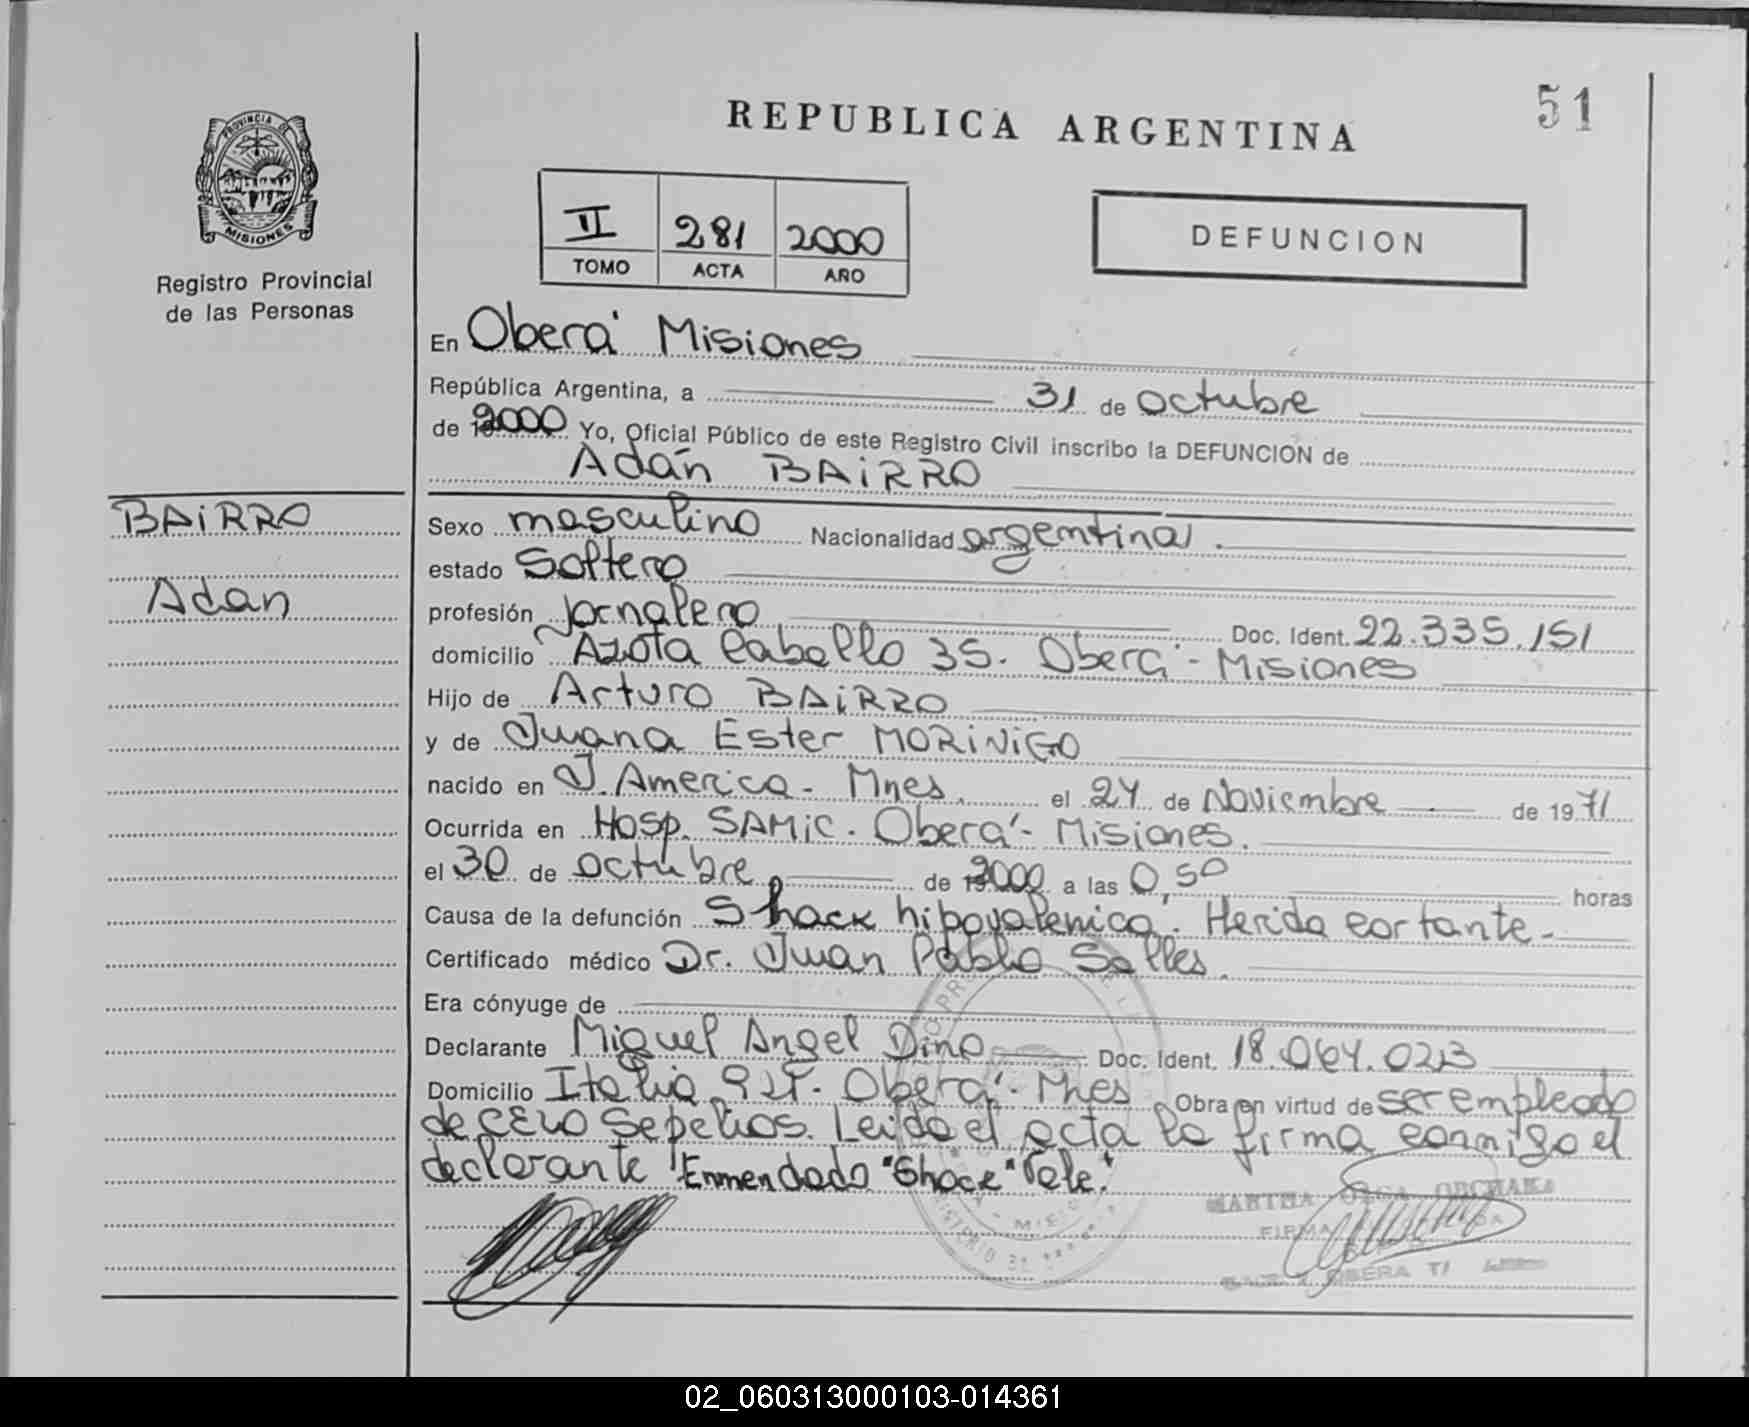 51
REPUBLICA ARGENTINA
PROVINCIA DE
MISIONES
II 281 2000
TOMO ACTA AÑO
DEFUNCION
Registro Provincial
de las Personas
En Oberá Misiones
República Argentina, a 31 de octubre
de 2000 Yo, Oficial Público de este Registro Civil inscribo la DEFUNCION de
Adán BAiRRO
BAiRRO
Adan
Sexo masculino Nacionalidad argentina.
estado Soltero
profesión Jornalero Doc. Ident. 22.335.151
domicilio Azota Caballo 35. Oberá - Misiones
Hijo de Arturo BAiRRO
y de Juana Ester MORiNiGO
nacido en J. America - Mnes. el 24 de Noviembre de 1971
Ocurrida en Hosp. SAMiC. Oberá - Misiones.
el 30 de octubre de 2000 a las 0,50 horas
Causa de la defunción Shock hipovolemico. Herida cortante -
Certificado médico Dr. Juan Pablo Salles.
Era cónyuge de
Declarante Miguel Angel Dino Doc. Ident. 18.064.023
Domicilio Italia Oberá - Mnes Obra en virtud de ser empleado
de CELO Sepelios. Leida el acta la firma conmigo el
declarante Enmendado "Shock" Vale.
MARTHA OLGA
FIRMA
OBERA
02_060313000103-014361